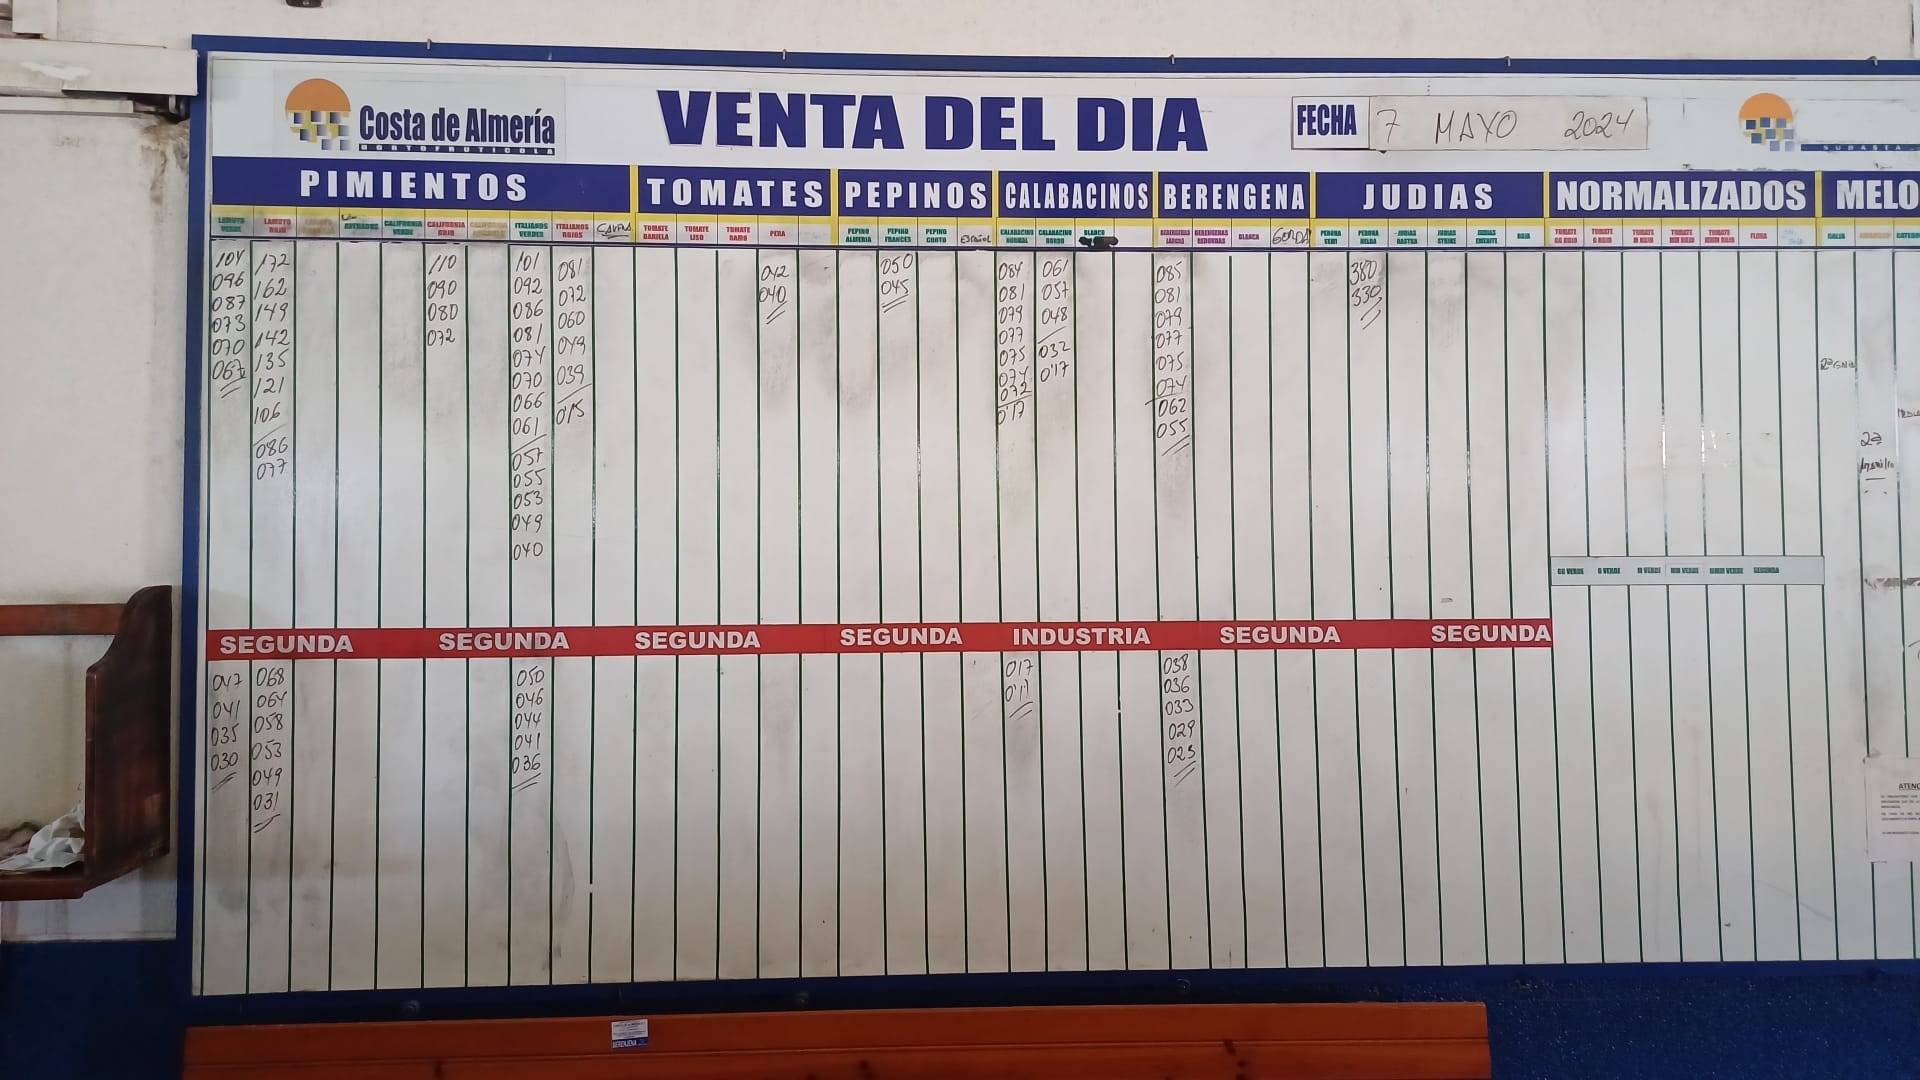 Costa de Almería
HORTOFRUTICOLA
VENTA DEL DIA
FECHA 7 MAYO 2024
SUBASTA
PIMIENTOS TOMATES PEPINOS CALABACINOS BERENGENA JUDIAS NORMALIZADOS MELO
LAMUYO VERDE
LAMUYO ROJO
CALIFORNIA VERDE
CALIFORNIA ROJO
ITALIANOS VERDES
ITALIANOS ROJOS
TOMATE DANIELA
TOMATE LISO
TOMATE RAMO
PERA
PEPINO ALMERIA
PEPINO FRANCES
PEPINO CORTO
ESPAÑOL
CALABACINO NORMAL
CALABACINO GORDO
BLANCO
BERENGENAS LARGAS
BERENGENAS REDONDAS
BLANCA
GORDA
PERONA SEMI
PERONA HELDA
JUDIAS RASTRA
JUDIAS STRIKE
JUDIAS EMERITE
ROJA
TOMATE GG ROJO
TOMATE G ROJO
TOMATE M ROJO
TOMATE MM ROJO
TOMATE MMM ROJO
FLORA
GALIA
104
096
087
073
070
067
172
162
149
142
135
121
106
086
077
110
090
080
072
101
092
086
081
074
070
066
061
057
055
053
049
040
081
072
060
049
039
0'15
042
040
050
045
084
081
079
077
075
074
072
0'17
061
057
048
032
0'17
085
081
079
077
075
074
062
055
380
330
2ª
GG VERDE G VERDE M VERDE MM VERDE MMM VERDE SEGUNDA
SEGUNDA SEGUNDA SEGUNDA SEGUNDA INDUSTRIA SEGUNDA SEGUNDA
047
041
035
030
068
064
058
053
049
031
050
046
044
041
036
017
0'11
038
036
033
029
023
ATENC
BERENJENA